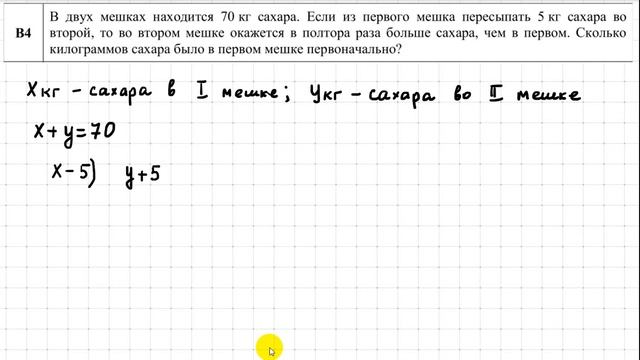 В4
В двух мешках находится 70 кг сахара. Если из первого мешка пересыпать 5 кг сахара во
второй, то во втором мешке окажется в полтора раза больше сахара, чем в первом. Сколько
килограммов сахара было в первом мешке первоначально?
X кг - сахара в I мешке; У кг - сахара во II мешке
x+y=70
x-5) y+5